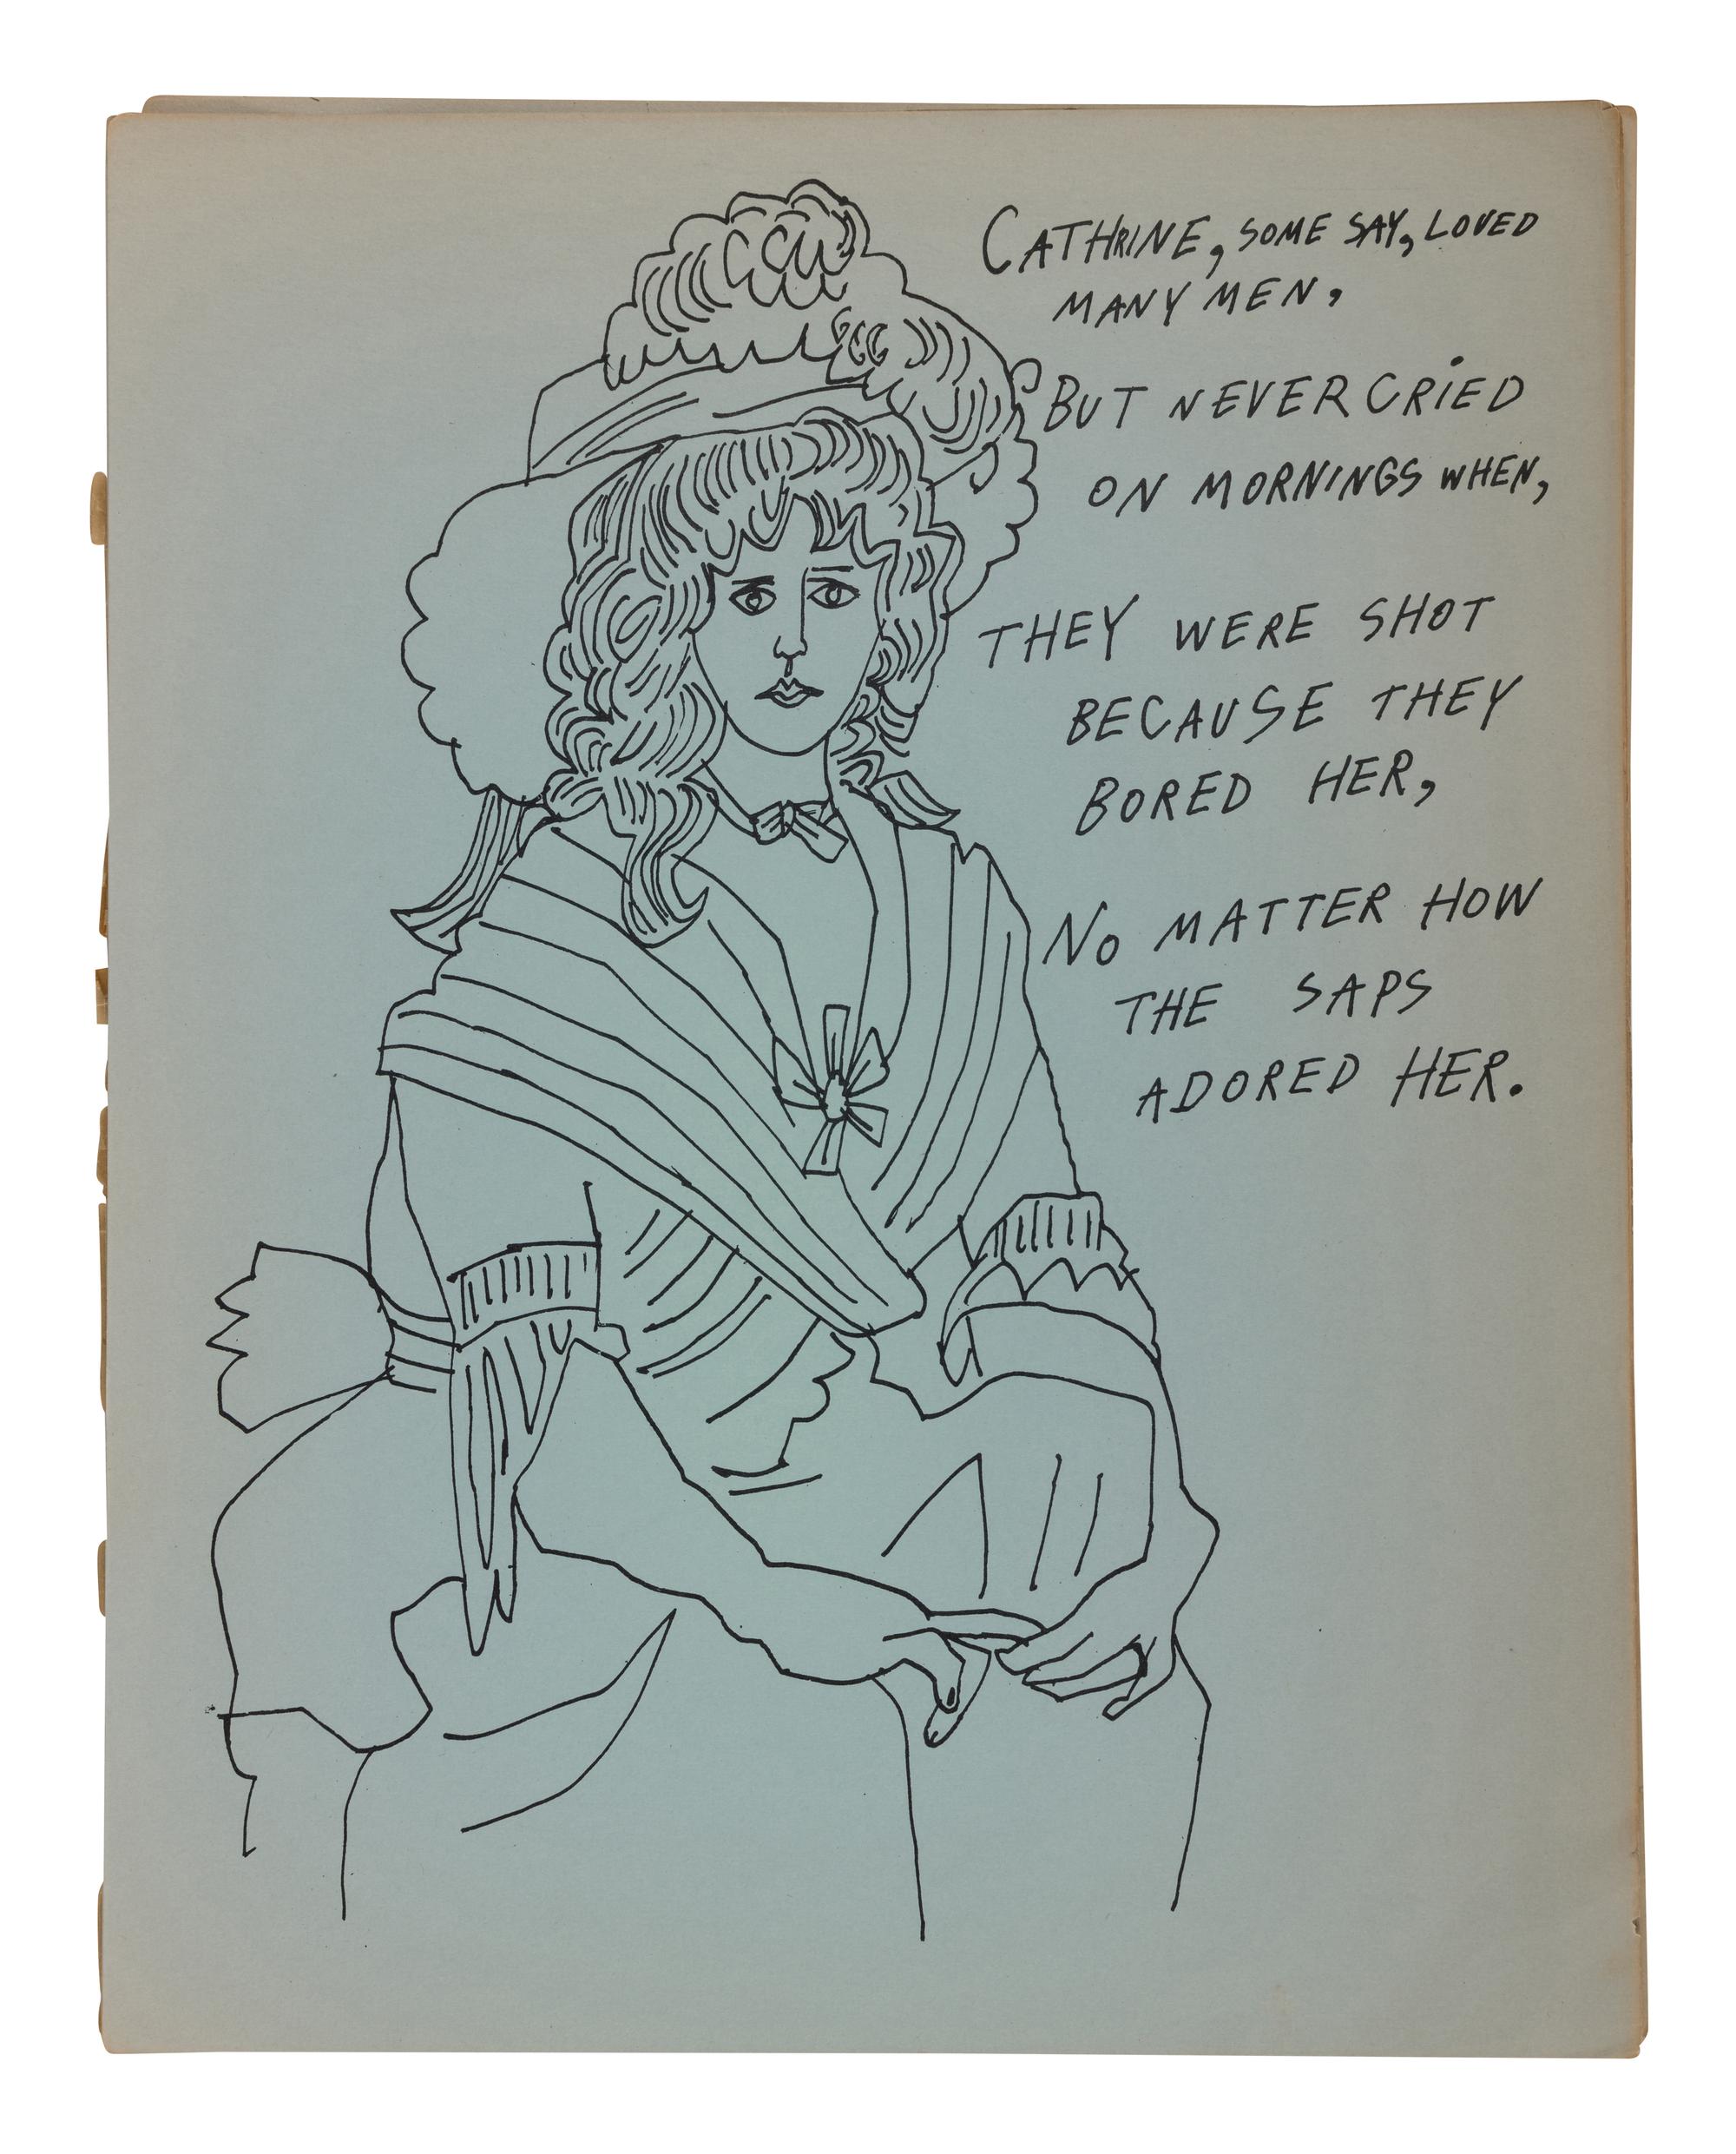 CATHRINE, SOME SAY, LOVED
MANY MEN,
BUT NEVER CRIED
ON MORNINGS WHEN,
THEY WERE SHOT
BECAUSE THEY
BORED HER,
NO MATTER HOW
THE SAPS
ADORED HER.